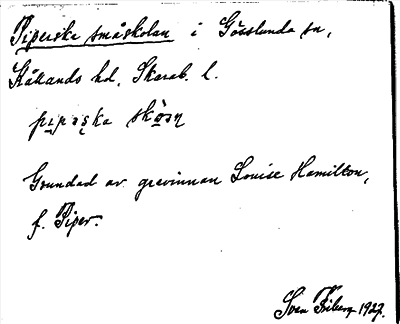 Piperska småskolan i Gösslunda sn,
Kållands hd, Skarab. l.
pipəṣka skọ̀ḷn
Grundad av grevinnan Louise Hamilton,
f. Piper.
Sven Friberg 1927.